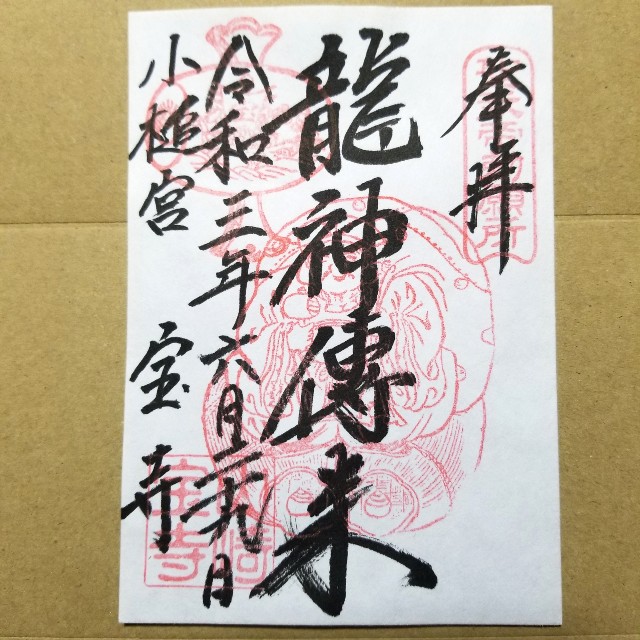 奉拝
龍神傳来
令和三年六月二十九日
小槌宮 宝寺